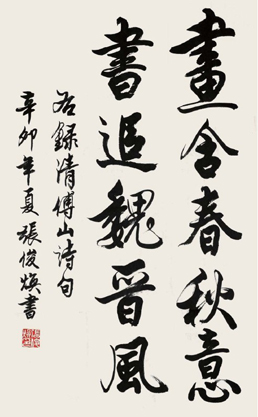 畫含春秋意
書追魏晉風
右錄清傅山詩句
辛卯年夏張俊煥書